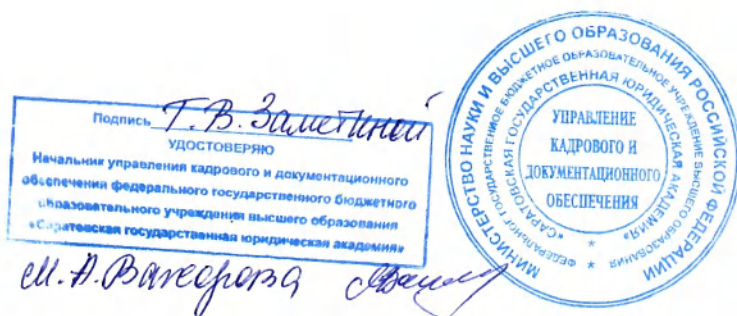 Подпись Т.В. Заметиной
УДОСТОВЕРЯЮ
Начальник управления кадрового и документационного
обеспечения федерального государственного бюджетного
образовательного учреждения высшего образования
«Саратовская государственная юридическая академия»
М.А.
МИНИСТЕРСТВО НАУКИ И ВЫСШЕГО ОБРАЗОВАНИЯ РОССИЙСКОЙ ФЕДЕРАЦИИ
ФЕДЕРАЛЬНОЕ ГОСУДАРСТВЕННОЕ БЮДЖЕТНОЕ ОБРАЗОВАТЕЛЬНОЕ УЧРЕЖДЕНИЕ ВЫСШЕГО ОБРАЗОВАНИЯ
«САРАТОВСКАЯ ГОСУДАРСТВЕННАЯ ЮРИДИЧЕСКАЯ АКАДЕМИЯ»
УПРАВЛЕНИЕ
КАДРОВОГО И
ДОКУМЕНТАЦИОННОГО
ОБЕСПЕЧЕНИЯ